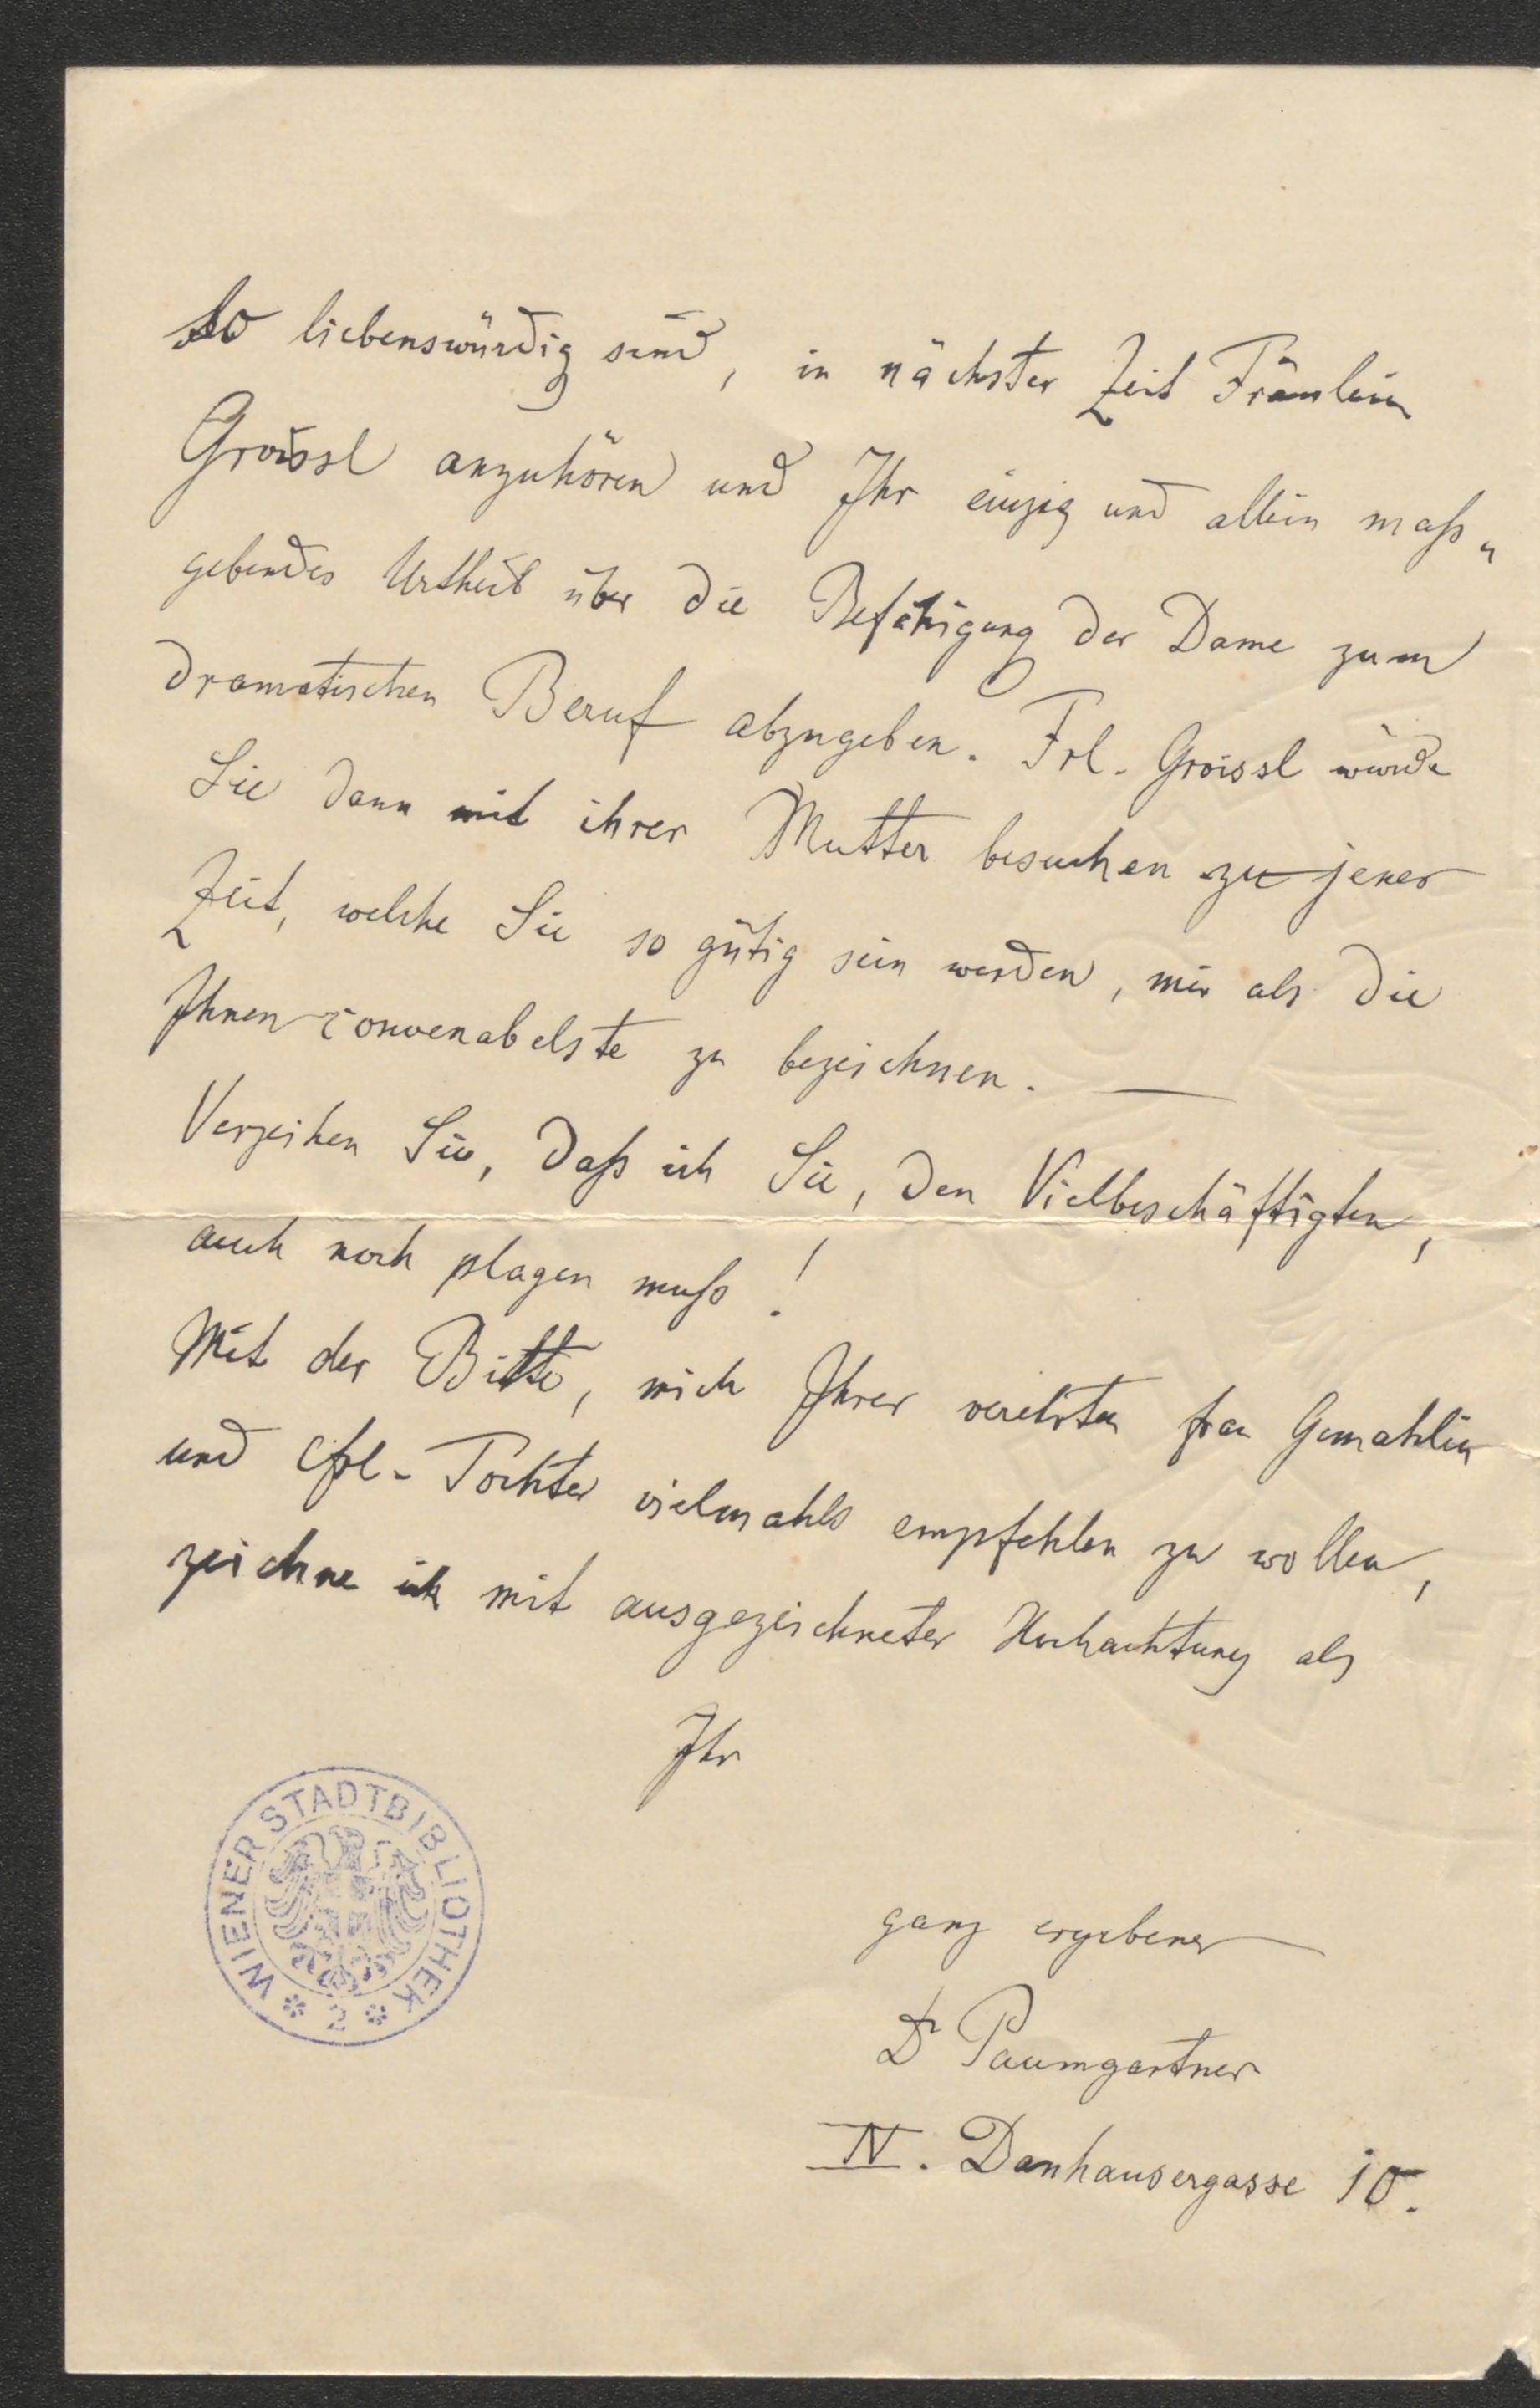 so liebenswürdig sind, in nächster Zeit Fräulein
Groissl anzuhören und Ihr einzig und allein maß„
gebendes Urtheil über die Befähigung der Dame zum
dramatischen Beruf abzugeben. Frl. Groissl würde
Sie dann mit ihrer Mutter besuchen zu jener
Zeit, welche Sie so gütig sein werden, mir als die
Ihnen convenabelste zu bezeichnen. —
Verzeihen Sie, daß ich Sie, den Vielbeschäftigten,
auch noch plagen muß!
Mit der Bitte, mich Ihrer verehrten Frau Gemahlin
und Frl. Tochter vielmahls empfehlen zu wollen,
zeichne ich mit ausgezeichneter Hochachtung als
Ihr
ganz ergebener
Dr Paumgartner
IV. Danhausergasse 10.
WIENER STADTBIBLIOTHEK
* 2 *